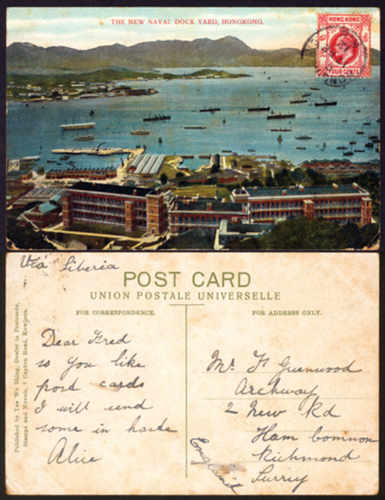 THE NEW NAVAL DOCK YARD, HONGKONG.
HONG KONG
FOUR CENTS
Via Siberia
POST CARD
UNION POSTALE UNIVERSELLE
FOR CORRESPONDENCE.
FOR ADDRESS ONLY.
Published by Yee Wo Shing, Dealer in Postcards,
Stamps and Novels, 7 Canton Road, Kowloon.
Dear Fred
so you like
post cards
I will send
some in haste
Alice
Mr F Greenwood
Archway
2 New Rd
Ham common
Richmond
Surrey
England